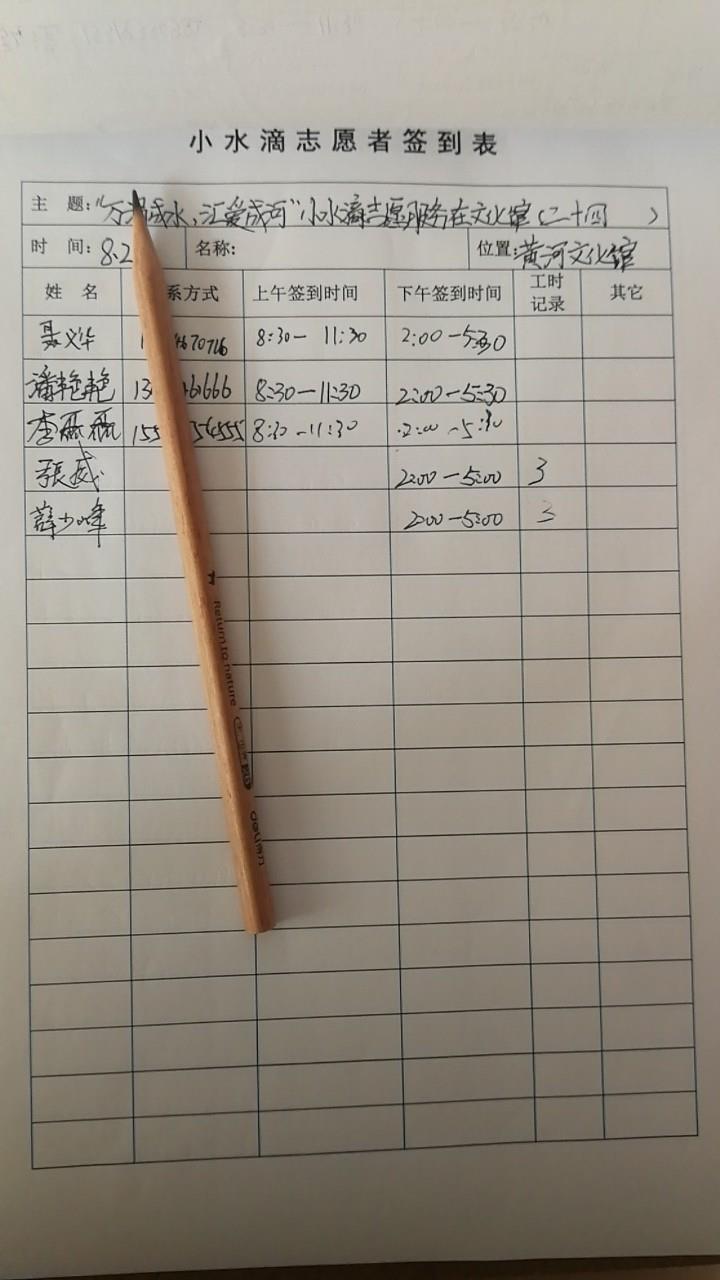 小水滴志愿者签到表
主 题:“万 成水、汇爱成河”小水滴志愿服务在文化馆(二十四 )
时 间: 8.2 名称: 位置:黄河文化馆
姓 名 系方式 上午签到时间 下午签到时间 工时记录 其它
聂义华 1 4670716 8:30— 11:30 2:00—5:30
潘艳艳 13 161666 8:30—11:30 2:00—5:30
李 155 54555 8:30—11:30 2:00—5:30
張威 2:00—5:00 3
薛少峰 2:00—5:00 3
Return to nature
deli得力